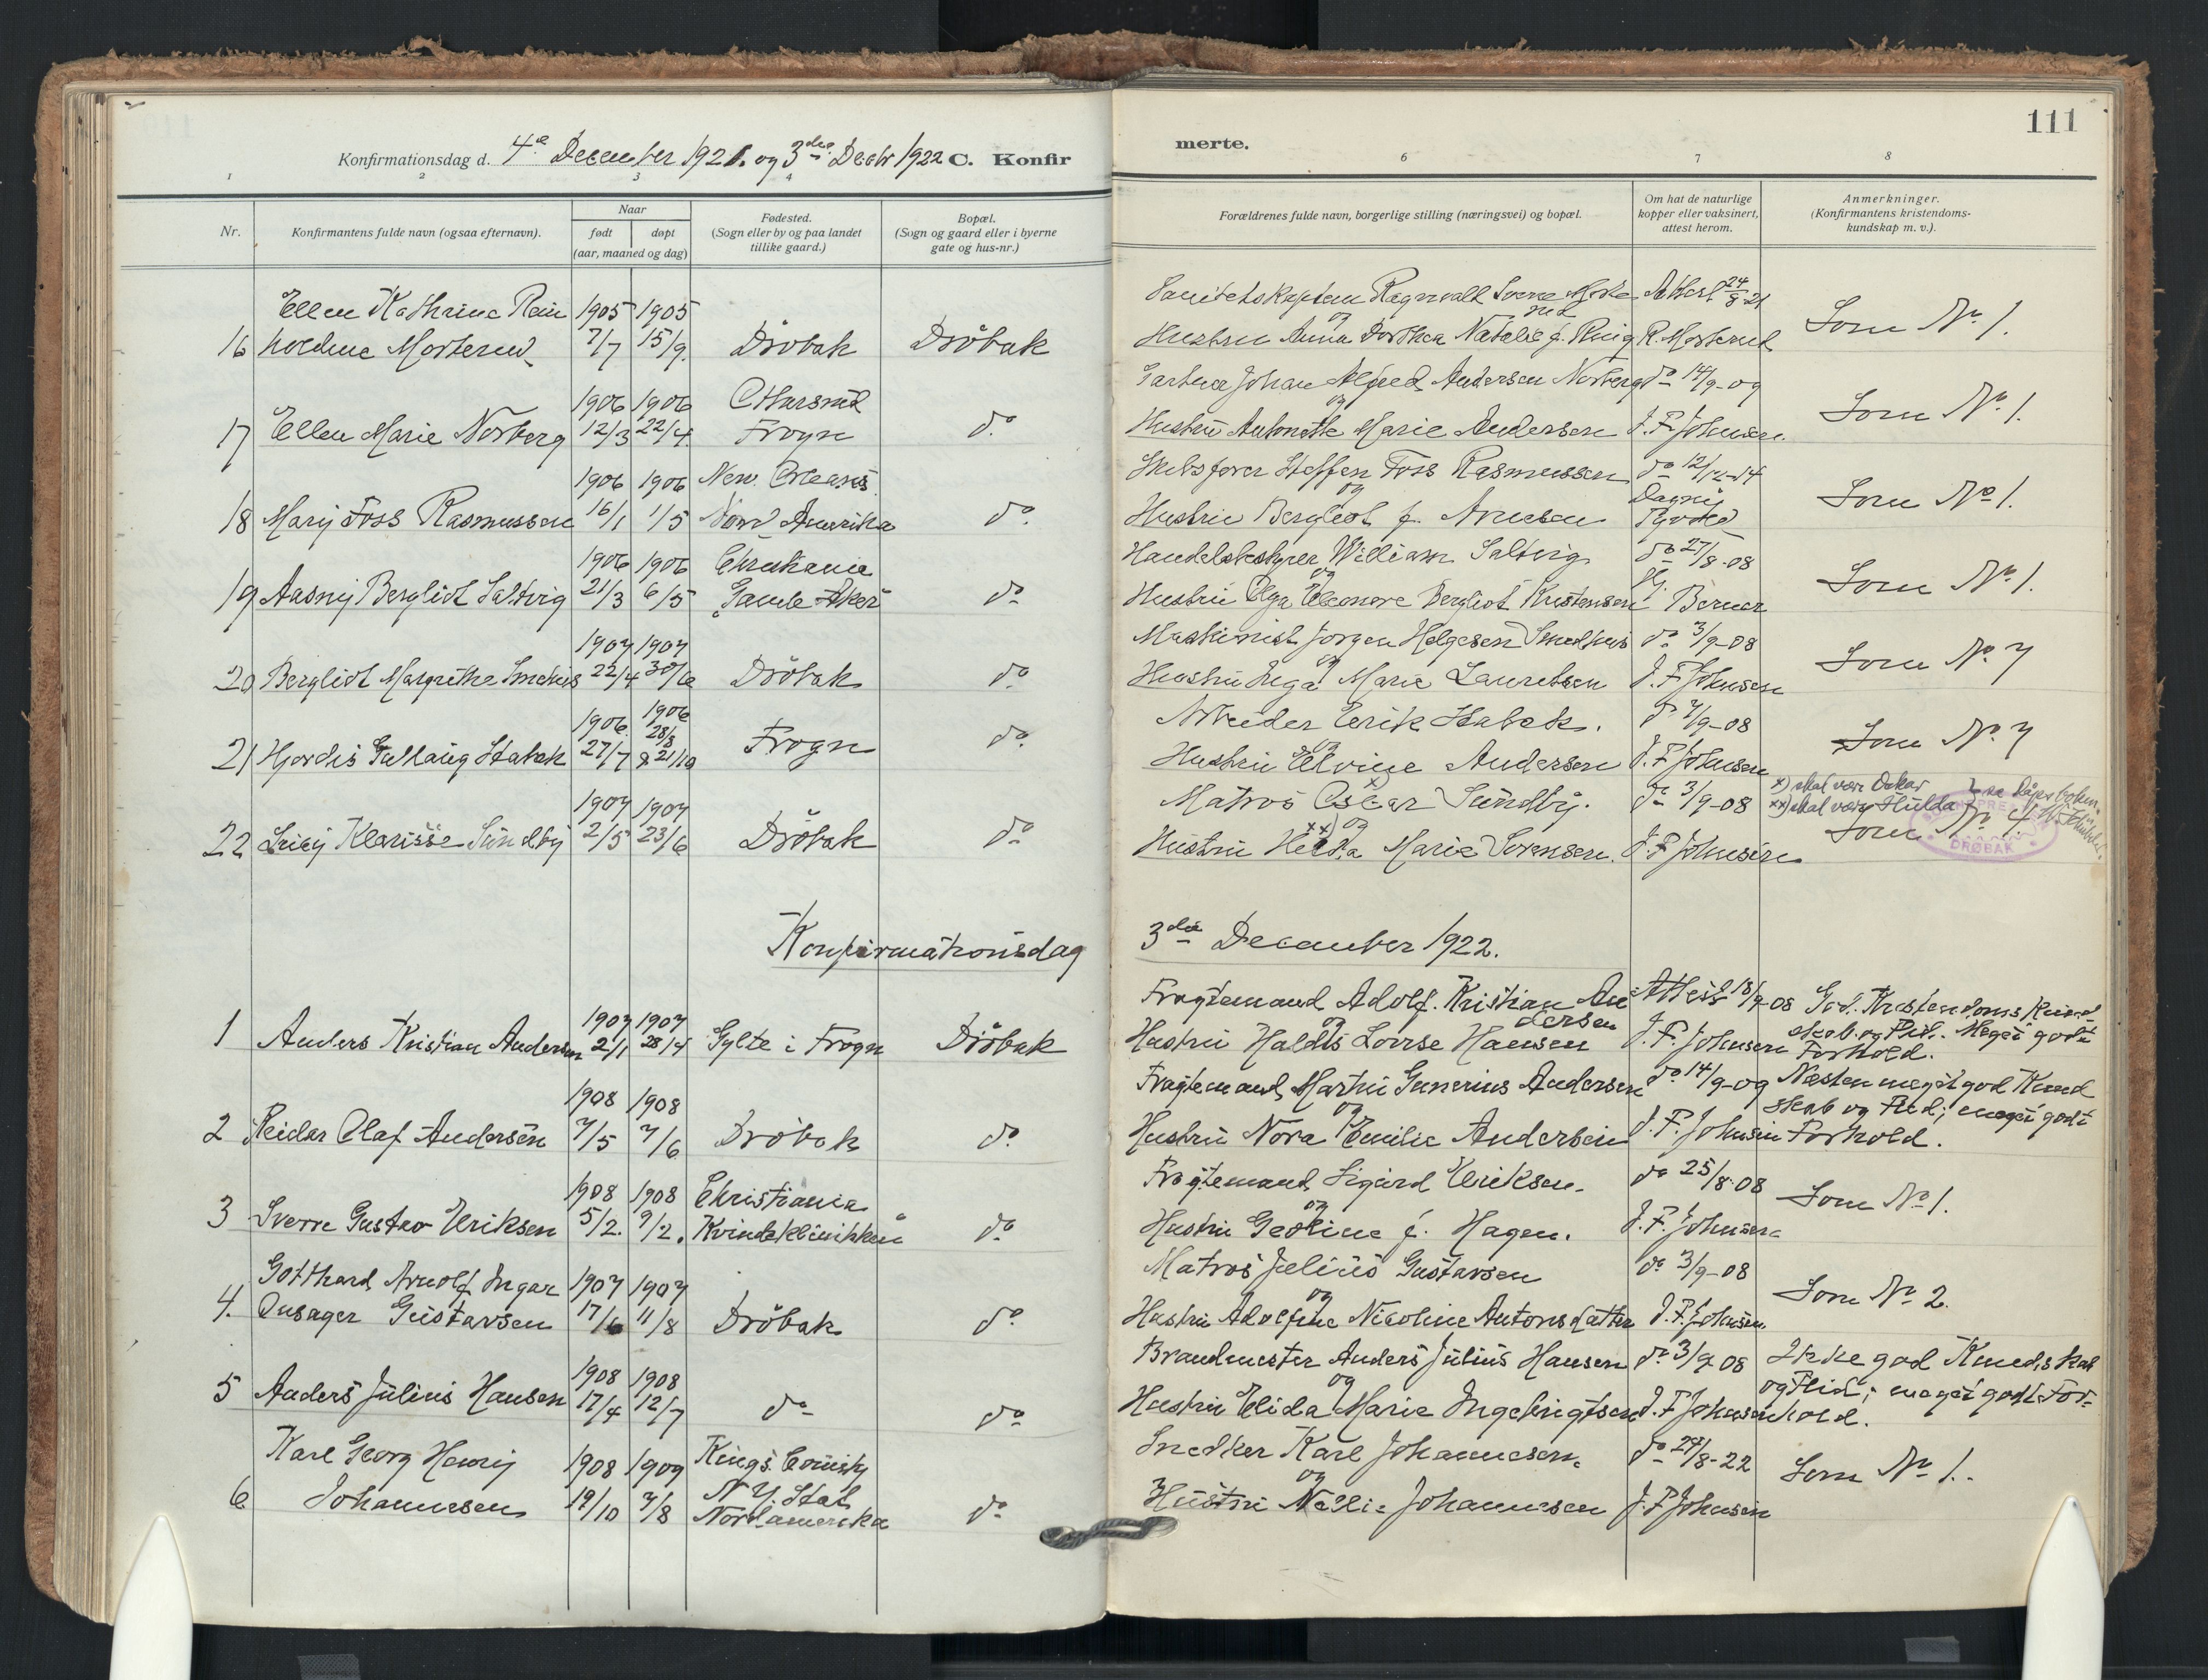 111
Konfirmationsdag d. 4de December 1921. og 3die Decbr 1922 C. Konfir
merte.
1 2 3 4
6 7 8
Nr.
Konfirmantens fulde navn (ogsaa efternavn).
Naar
født døpt
(aar, maaned og dag)
Fødested.
(Sogn eller by og paa landet
tillike gaard.)
Bopæl.
(Sogn og gaard eller i byerne
gate og hus-nr.)
Forældrenes fulde navn, borgerlige stilling (næringsvei) og bopæl.
Om hat de naturlige
kopper eller vaksinert,
attest herom.
Anmerkninger.
(Konfirmantens kristendoms-
kundskap m. v.).
Ellen Kathrine 1905 1905
16 Morterud 7/7 15/9. Drøbak Drøbak
Sanitetskaptein Ragnvald Attest 24/8-21
og
Hustru Anna Dorthea Natalie f. R. Morterud
Som No 1.
1906 1906
17 Ellen Marie Norberg 12/3 22/4 Frogn do
Gartner Johan Alfred Andersen Norberg do 14/9-09
og
Hustru Antonette Marie Andersen J. F. Johnsen.
Som No 1.
1906 1906 New Orleans
18 Mary Foss Rasmussen 16/1 1/5 Nord Amerika do
Skibsfører Steffen Foss Rasmussen do 12/12-14
og Dagny
Hustru Bergliot f. Arnesen
Som No 1.
1906 1906 Christiania
19 Aasny Bergliot Saltvig 21/3 6/5 Gamle Aker do
Handelsbestyrer William Saltvig do 27/8-08
og
Hustru Olga Eleonore Bergliot Kristensen Berner
Som No 1.
1907 1907
20 Bergliot Margrethe Smehus 22/4 30/6 Drøbak do
Maskinist Jørgen Helgesen Smedhus do 3/9-08
og
Hustru Inga Marie Lauritsen J. F. Johnsen
Som No 7
1906 1906
28/8
21 Hjørdis Gullaug Stabek 27/7 & 21/10 Frogn do
Arbeider Eerik Stabek. do 7/9-08
og
Hustru Elvine Andersen J. F. Johnsen
Som No 7
1907 1907
22 Lucy Klarisse Sundby 2/5 23/6 Drøbak do
x)
Matros Oscar Sundby. do 3/9-08
xx) og
Hustru Helda Marie Sørensen. J. F. Johnsen
x) skal være Oskar
xx) skal være Hulda
Som No 4
DRØBAK
Konfirmationsdag 3die December 1922.
1907 1907
1 Anders Kristian Andersen 2/1 28/4 Gylte i Frogn Drøbak
Fragtemand Adolf. Kristian An- Attest 18/9-08
dersen
og
Hustru Haldis Lovise Hansen J. F. Johnsen
God. Kristendoms Kund
skab og Flid. Meget godt
Forhold.
1908 1908
2 Reidar Olaf Andersen 7/5 7/6 Drøbak do
Fragtemand Martin Gunerius Andersen do 14/9-09
og
Hustru Nora Emilie Andersen J. F. Johnsen
Næsten meget god Kund
skab og Flid; meget godt
Forhold.
1908 1908 Christiania
3 Sverre Gustav Eriksen 5/2. 9/2. Kvindeklinikken do
Fragtemand Sigurd Eriksen. do 25/8-08
og
Hustru Georine f. Hagen. J. F. Johnsen
Som No 1.
Gotthard Arnolf Ingar 1907 1907
4. Onsager Gustavsen 17/6 11/8 Drøbak do
Matros Julius Gustavsen do 3/9-08
og
Hustru Adolfine Nicoline Antonsdatter J. F. Johnsen.
Som No 2.
1908 1908
5 Anders Julius Hansen 17/4 12/7 do do
Brandmester Anders Julius Hansen do 3/9 08
og
Hustru Elida Marie Ingebrigtsen J. F. Johnsen
Ikke god Kundskab
og Flid; meget godt For-
hold.
Karl Georg Henry 1908 1909 Kings County
N. Y. Stat
6 Johannesen 19/10 7/8 Nordamerika do
Snedker Karl Johannesen. do 24/8-22
og
Hustru Nelli Johannesen J. F. Johnsen
Som No 1.